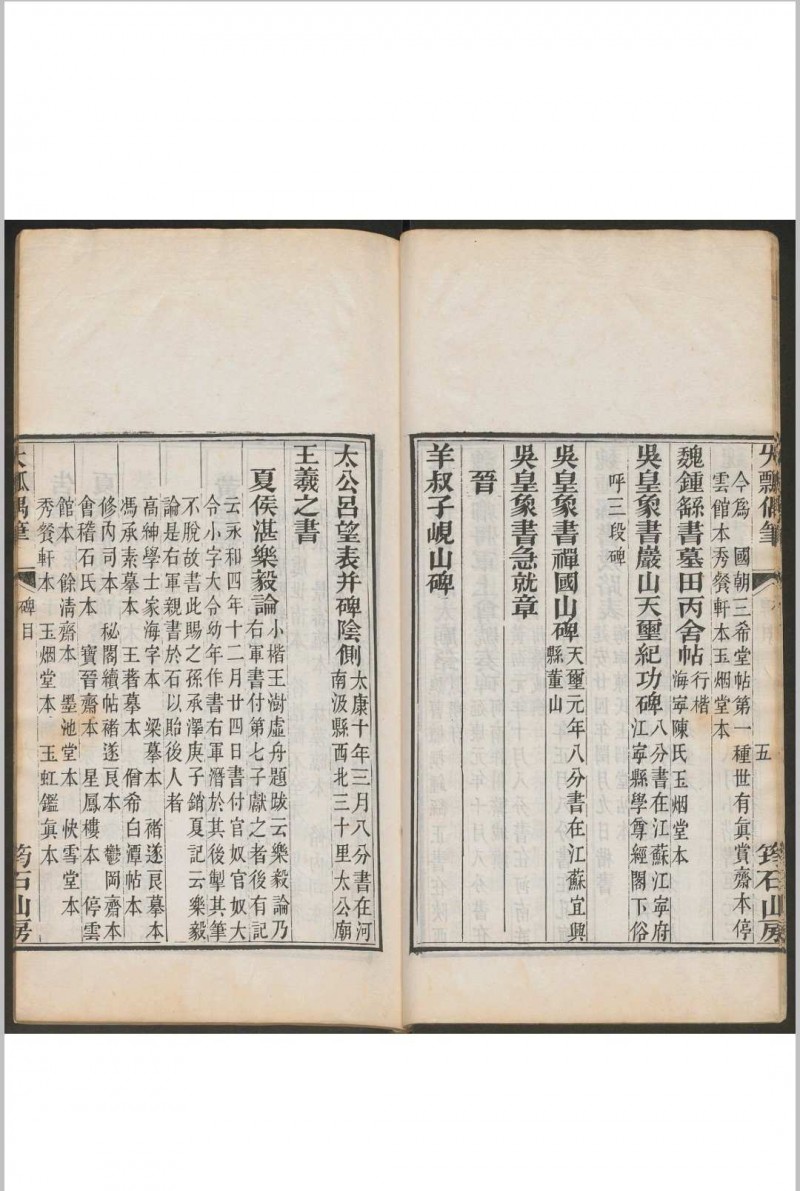 大瓢偶筆
五
筠石山房
今爲 國朝三希堂帖第一種世有眞賞齋本停
雲館本秀餐軒本玉烟堂本
魏鍾繇書墓田丙舍帖行楷
海寧陳氏玉烟堂本
吳皇象書巖山天璽紀功碑八分書在江蘇江寧府
江寧縣學尊經閣下俗
呼三段碑
吳皇象書禪國山碑天璽元年八分書在江蘇宜興
縣董山
吳皇象書急就章
晉
羊叔子峴山碑
太公呂望表并碑陰側太康十年三月八分書在河
南汲縣西北三十里太公廟
王羲之書
夏侯湛樂毅論小楷王澍虛舟題跋云樂毅論乃
右軍書付第七子獻之者後有記
云永和四年十二月廿四日書付官奴官奴大
令小字大令幼年作書右軍潛於其後掣其筆
不脫故書此賜之孫承澤庚子銷夏記云樂毅
論是右軍親書於石以貽後人者
高紳學士家海字本 梁摹本 褚遂良摹本
馮承素摹本 王著摹本 僧希白潭帖本
修內司本 秘閣續帖褚遂良本 鬱岡齋本
會稽石氏本 寶晉齋本 星鳳樓本 停雲
館本 餘淸齋本 墨池堂本 快雪堂本
秀餐軒本 玉烟堂本 玉虹鑑眞本
大瓢偶筆
碑目
筠石山房